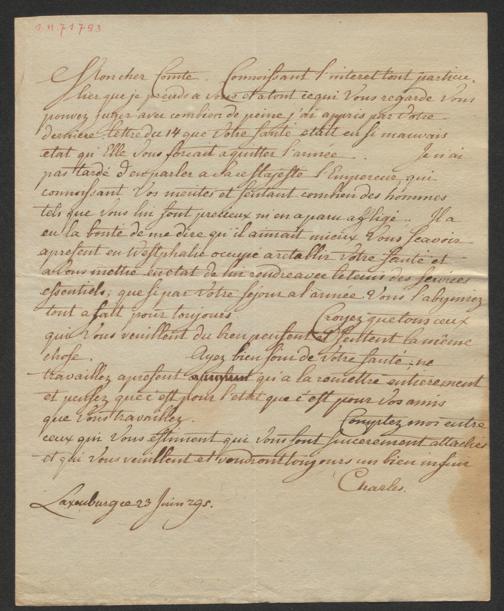 1.11.71793
Mon cher Comte. Connoissant l'interet tout particu-
lier que je prends a vous et a tout ce qui Vous regarde Vous
pouvez juger avec combien de peine j'ai appris par Votre
derniere lettre du 14 que Votre santé etait en si mauvais
etat qu'Elle Vous forcait a quitter l'armée. Je n'ai
pas tardé d'en parler a sa Majesté l'Empereur, qui
connoissant Vos merites et sentant combien des hommes
tels que Vous lui sont precieux m'en a paru afligé. Il a
eu la bonté de me dire qu'il aimait mieux Vous scavoir
apresent en Westphalie occupé a retablir Votre santé et
a Vous mettre en etat de lui rendre avec le tems des services
essentiels; que si par Votre sejour a l'armée Vous l'abymiez
tout a fait pour toujours. Croyez que tous ceux
qui Vous veuillent du bien pensent et sentent la même
chose. Ayez bien soin de Votre santé; ne
travaillez apresent qu'a la remettre entierement
et pensez que c'est pour l'etat que c'est pour Vos amis
que Vous travaillez. Comptez moi entre
ceux qui Vous estiment qui Vous sont sincerement attachés
et qui Vous veuillent et voudront toujours un bien infini
Charles.
Laxenburg ce 23 Juin 795.